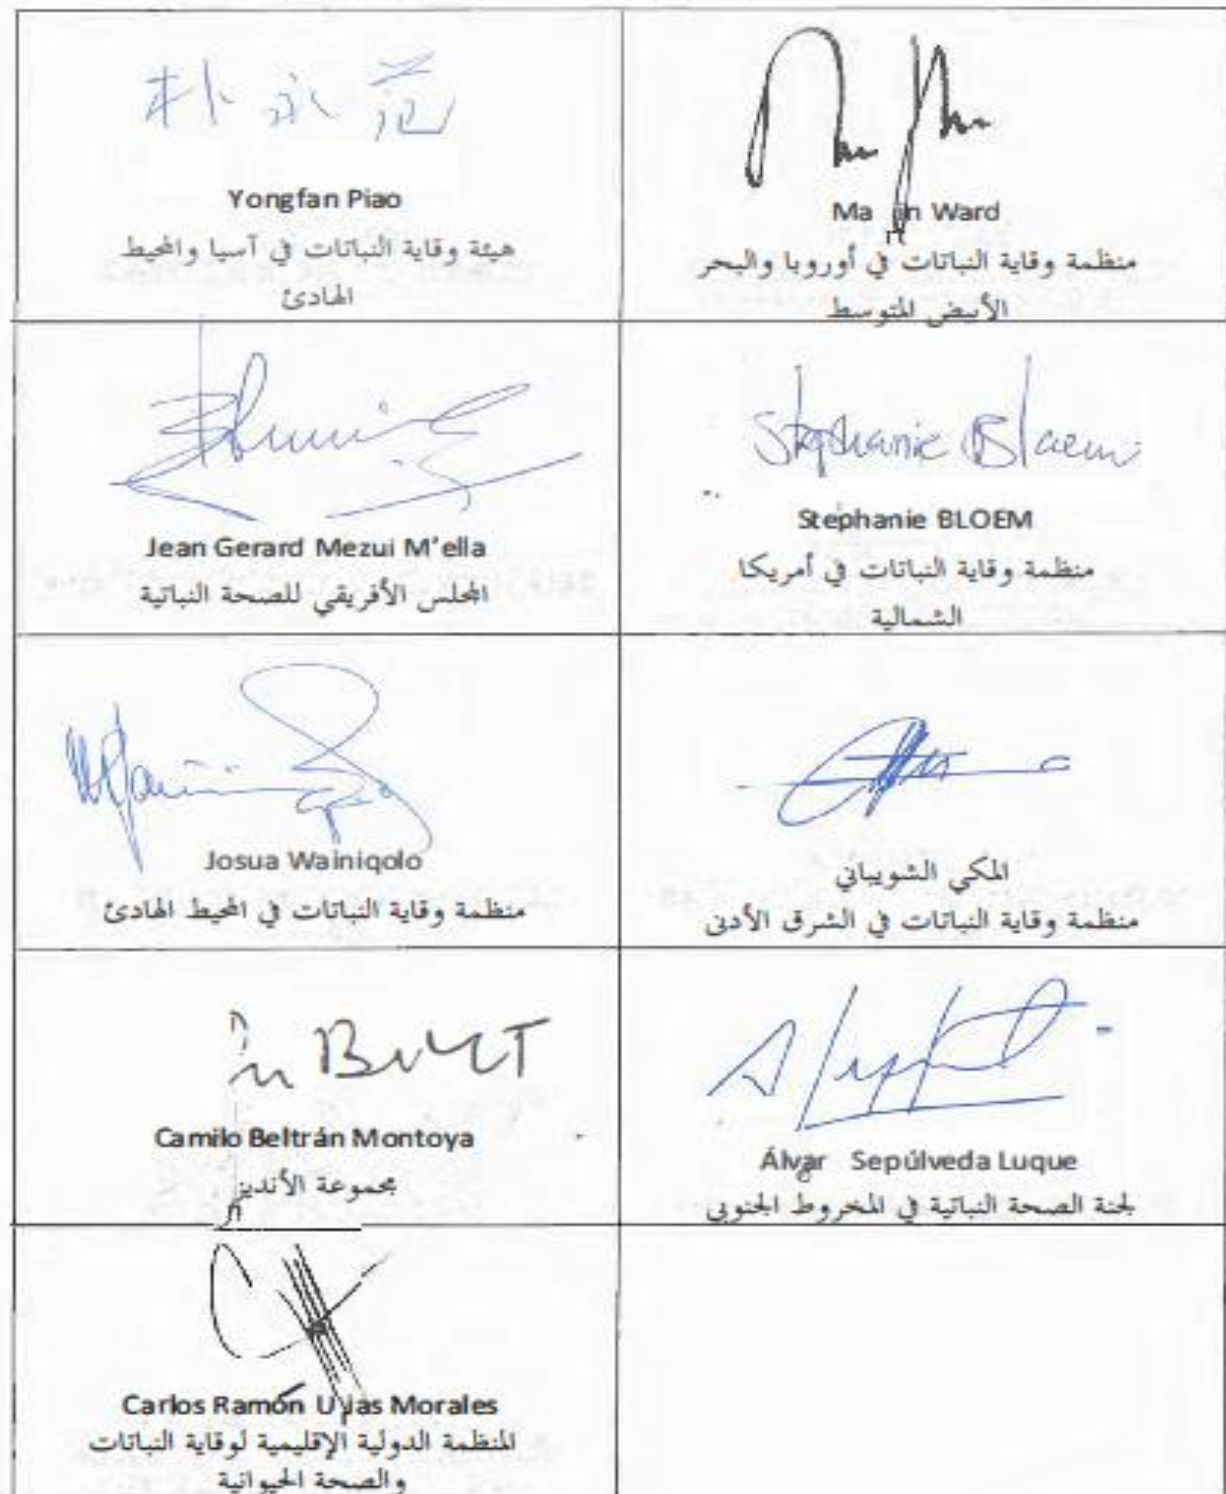 朴永范
Yongfan Piao
هيئة وقاية النباتات في آسيا والمحيط
الهادئ
Ma in Ward
منظمة وقاية النباتات في أوروبا والبحر
الأبيض المتوسط
Jean Gerard Mezui M'ella
المجلس الأفريقي للصحة النباتية
Stephanie Bloem
Stephanie BLOEM
منظمة وقاية النباتات في أمريكا
الشمالية
Josua Wainiqolo
منظمة وقاية النباتات في المحيط الهادئ
المكي الشويباني
منظمة وقاية النباتات في الشرق الأدنى
Camilo Beltrán Montoya
مجموعة الأنديز
Álvar Sepúlveda Luque
لجنة الصحة النباتية في المخروط الجنوبي
Carlos Ramón U jas Morales
المنظمة الدولية الإقليمية لوقاية النباتات
والصحة الحيوانية